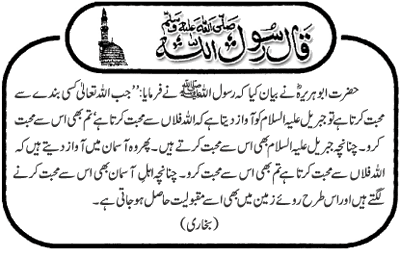 قال رسول اللہ صلی اللہ علیہ وسلم
حضرت ابوہریرہؓ نے بیان کیا کہ رسول اللہ ﷺ نے فرمایا: ’’جب اللہ تعالیٰ کسی بندے سے
محبت کرتا ہے تو جبریل علیہ السلام کو آواز دیتا ہے کہ اللہ فلاں سے محبت کرتا ہے‘ تم بھی اس سے محبت
کرو۔ چنانچہ جبریل علیہ السلام بھی اس سے محبت کرتے ہیں۔ پھر وہ آسمان میں آواز دیتے ہیں کہ
اللہ فلاں سے محبت کرتا ہے تم بھی اس سے محبت کرو۔ چنانچہ اہل آسمان بھی اس سے محبت کرنے
لگتے ہیں اور اس طرح روئے زمین میں بھی اسے مقبولیت حاصل ہوجاتی ہے۔
(بخاری)